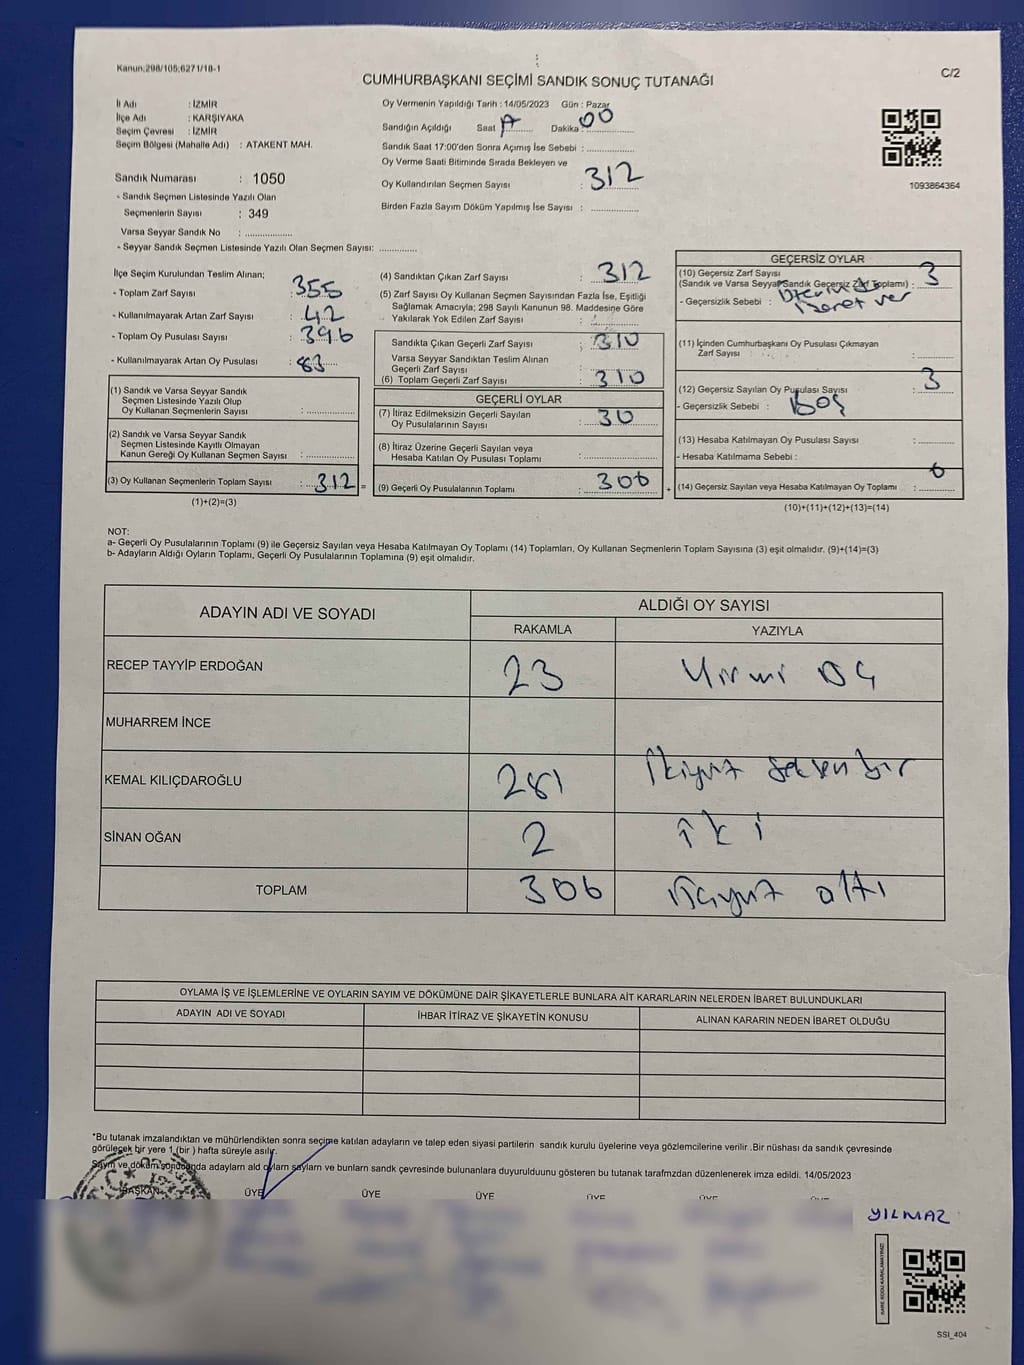 Kanun:298/105;6271/18-1
C/2
CUMHURBAŞKANI SEÇİMİ SANDIK SONUÇ TUTANAĞI
İl Adı : İZMİR
İlçe Adı : KARŞIYAKA
Seçim Çevresi : İZMİR
Seçim Bölgesi (Mahalle Adı) : ATAKENT MAH.
Sandık Numarası : 1050
- Sandık Seçmen Listesinde Yazılı Olan
Seçmenlerin Sayısı : 349
Varsa Seyyar Sandık No : ..................
- Seyyar Sandık Seçmen Listesinde Yazılı Olan Seçmen Sayısı: ..............
Oy Vermenin Yapıldığı Tarih : 14/05/2023 Gün : Pazar
Sandığın Açıldığı Saat Dakika 00
Sandık Saat 17:00'den Sonra Açımış İse Sebebi : ..................
Oy Verme Saati Bitiminde Sırada Bekleyen ve
Oy Kullandırılan Seçmen Sayısı : 312
Birden Fazla Sayım Döküm Yapılmış İse Sayısı : ..................
1093864364
İlçe Seçim Kurulundan Teslim Alınan;
- Toplam Zarf Sayısı : 355
- Kullanılmayarak Artan Zarf Sayısı : 42
- Toplam Oy Pusulası Sayısı : 396
- Kullanılmayarak Artan Oy Pusulası : 83
(1) Sandık ve Varsa Seyyar Sandık
Seçmen Listesinde Yazılı Olup
Oy Kullanan Seçmenlerin Sayısı : ..............
(2) Sandık ve Varsa Seyyar Sandık
Seçmen Listesinde Kayıtlı Olmayan
Kanun Gereği Oy Kullanan Seçmen Sayısı : ..............
(3) Oy Kullanan Seçmenlerin Toplam Sayısı : 312 =
(1)+(2)=(3)
(4) Sandıktan Çıkan Zarf Sayısı : 312
(5) Zarf Sayısı Oy Kullanan Seçmen Sayısından Fazla İse, Eşitliği
Sağlamak Amacıyla; 298 Sayılı Kanunun 98. Maddesine Göre
Yakılarak Yok Edilen Zarf Sayısı : ..............
Sandıkta Çıkan Geçerli Zarf Sayısı : 310
Varsa Seyyar Sandıktan Teslim Alınan
Geçerli Zarf Sayısı : ..............
(6) Toplam Geçerli Zarf Sayısı : 310
GEÇERLİ OYLAR
(7) İtiraz Edilmeksizin Geçerli Sayılan
Oy Pusulalarının Sayısı : 30
(8) İtiraz Üzerine Geçerli Sayılan veya
Hesaba Katılan Oy Pusulası Toplamı : ..............
(9) Geçerli Oy Pusulalarının Toplamı : 306 +
GEÇERSİZ OYLAR
(10) Geçersiz Zarf Sayısı
(Sandık ve Varsa Seyyar Sandık Geçersiz Zarf Toplamı) : 3
- Geçersizlik Sebebi : Üzerinde
işaret var
(11) İçinden Cumhurbaşkanı Oy Pusulası Çıkmayan
Zarf Sayısı : ..............
(12) Geçersiz Sayılan Oy Pusulası Sayısı : 3
- Geçersizlik Sebebi : Boş
(13) Hesaba Katılmayan Oy Pusulası Sayısı : ..............
- Hesaba Katılmama Sebebi :
(14) Geçersiz Sayılan veya Hesaba Katılmayan Oy Toplamı : 6
(10)+(11)+(12)+(13)=(14)
NOT:
a- Geçerli Oy Pusulalarının Toplamı (9) ile Geçersiz Sayılan veya Hesaba Katılmayan Oy Toplamı (14) Toplamları, Oy Kullanan Seçmenlerin Toplam Sayısına (3) eşit olmalıdır. (9)+(14)=(3)
b- Adayların Aldığı Oyların Toplamı, Geçerli Oy Pusulalarının Toplamına (9) eşit olmalıdır.
ADAYIN ADI VE SOYADI
ALDIĞI OY SAYISI
RAKAMLA YAZIYLA
RECEP TAYYİP ERDOĞAN 23 Yirmi üç
MUHARREM İNCE
KEMAL KILIÇDAROĞLU 281 İkiyüz seksen bir
SİNAN OĞAN 2 iki
TOPLAM 306 üçyüz altı
OYLAMA İŞ VE İŞLEMLERİNE VE OYLARIN SAYIM VE DÖKÜMÜNE DAİR ŞİKAYETLERLE BUNLARA AİT KARARLARIN NELERDEN İBARET BULUNDUKLARI
ADAYIN ADI VE SOYADI İHBAR İTİRAZ VE ŞİKAYETİN KONUSU ALINAN KARARIN NEDEN İBARET OLDUĞU
*Bu tutanak imzalandıktan ve mühürlendikten sonra seçime katılan adayların ve talep eden siyasi partilerin sandık kurulu üyelerine veya gözlemcilerine verilir .Bir nüshası da sandık çevresinde
görülecek bir yere 1 (bir ) hafta süreyle asılır.
Sayım ve döküm sonucunda adayların ald oyların sayların ve bunların sandk çevresinde bulunanlara duyurulduunu gösteren bu tutanak tarafmzdan düzenlenerek imza edildi. 14/05/2023
BAŞKAN ÜYE ÜYE ÜYE ÜYE ÜYE ÜYE
YILMAZ
SSI_404